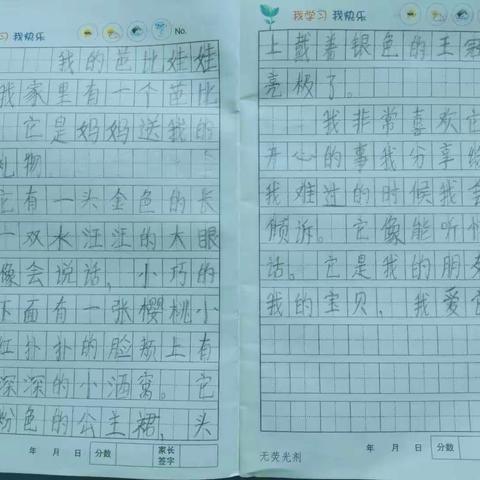 习 我快乐
No.
我的芭比娃娃
我家里有一个芭比
它是妈妈送我的
礼物
它有一头金色的长
一双水汪汪的大眼
像会说话,小巧的
下面有一张樱桃小
红扑扑的脸颊上有
深深的小酒窝。它
粉色的公主裙,头
年 月 日 分数 家长签字
我学习 我快乐
上戴着银色的王冠
亮极了。
我非常喜欢它
开心的事我分享给
我难过的时候我会
倾诉。它像能听懂
话。它是我的朋友
我的宝贝,我爱它
无荧光剂
年 月 日 分数